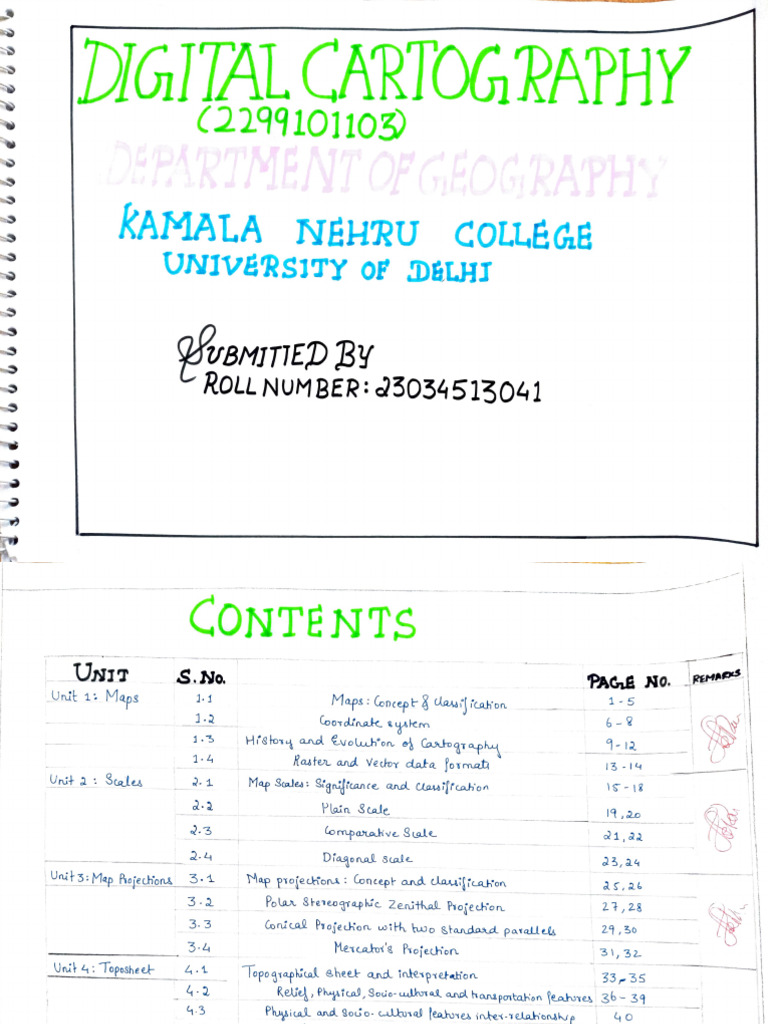 DIGITAL CARTOGRAPHY
(2299101103)
DEPARTMENT OF GEOGRAPHY
KAMALA NEHRU COLLEGE
UNIVERSITY OF DELHI
SUBMITTED BY
ROLL NUMBER: 23034513041
CONTENTS
UNIT S. NO. PAGE NO. REMARKS
Unit 1: Maps 1.1 Maps: Concept & Classification 1-5
1.2 Coordinate system 6-8
1.3 History and Evolution of Cartography 9-12
1.4 Raster and Vector data formats 13-14
Unit 2: Scales 2.1 Map Scales: Significance and Classification 15-18
2.2 Plain Scale 19,20
2.3 Comparative Scale 21,22
2.4 Diagonal scale 23,24
Unit 3: Map Projections 3.1 Map projections: Concept and classification 25,26
3.2 Polar Stereographic Zenithal Projection 27,28
3.3 Conical Projection with two standard parallels 29,30
3.4 Mercator's Projection 31,32
Unit 4: Toposheet 4.1 Topographical sheet and interpretation 33-35
4.2 Relief, Physical, Socio-cultural and transportation features 36-39
4.3 Physical and Socio-cultural features inter-relationship 40